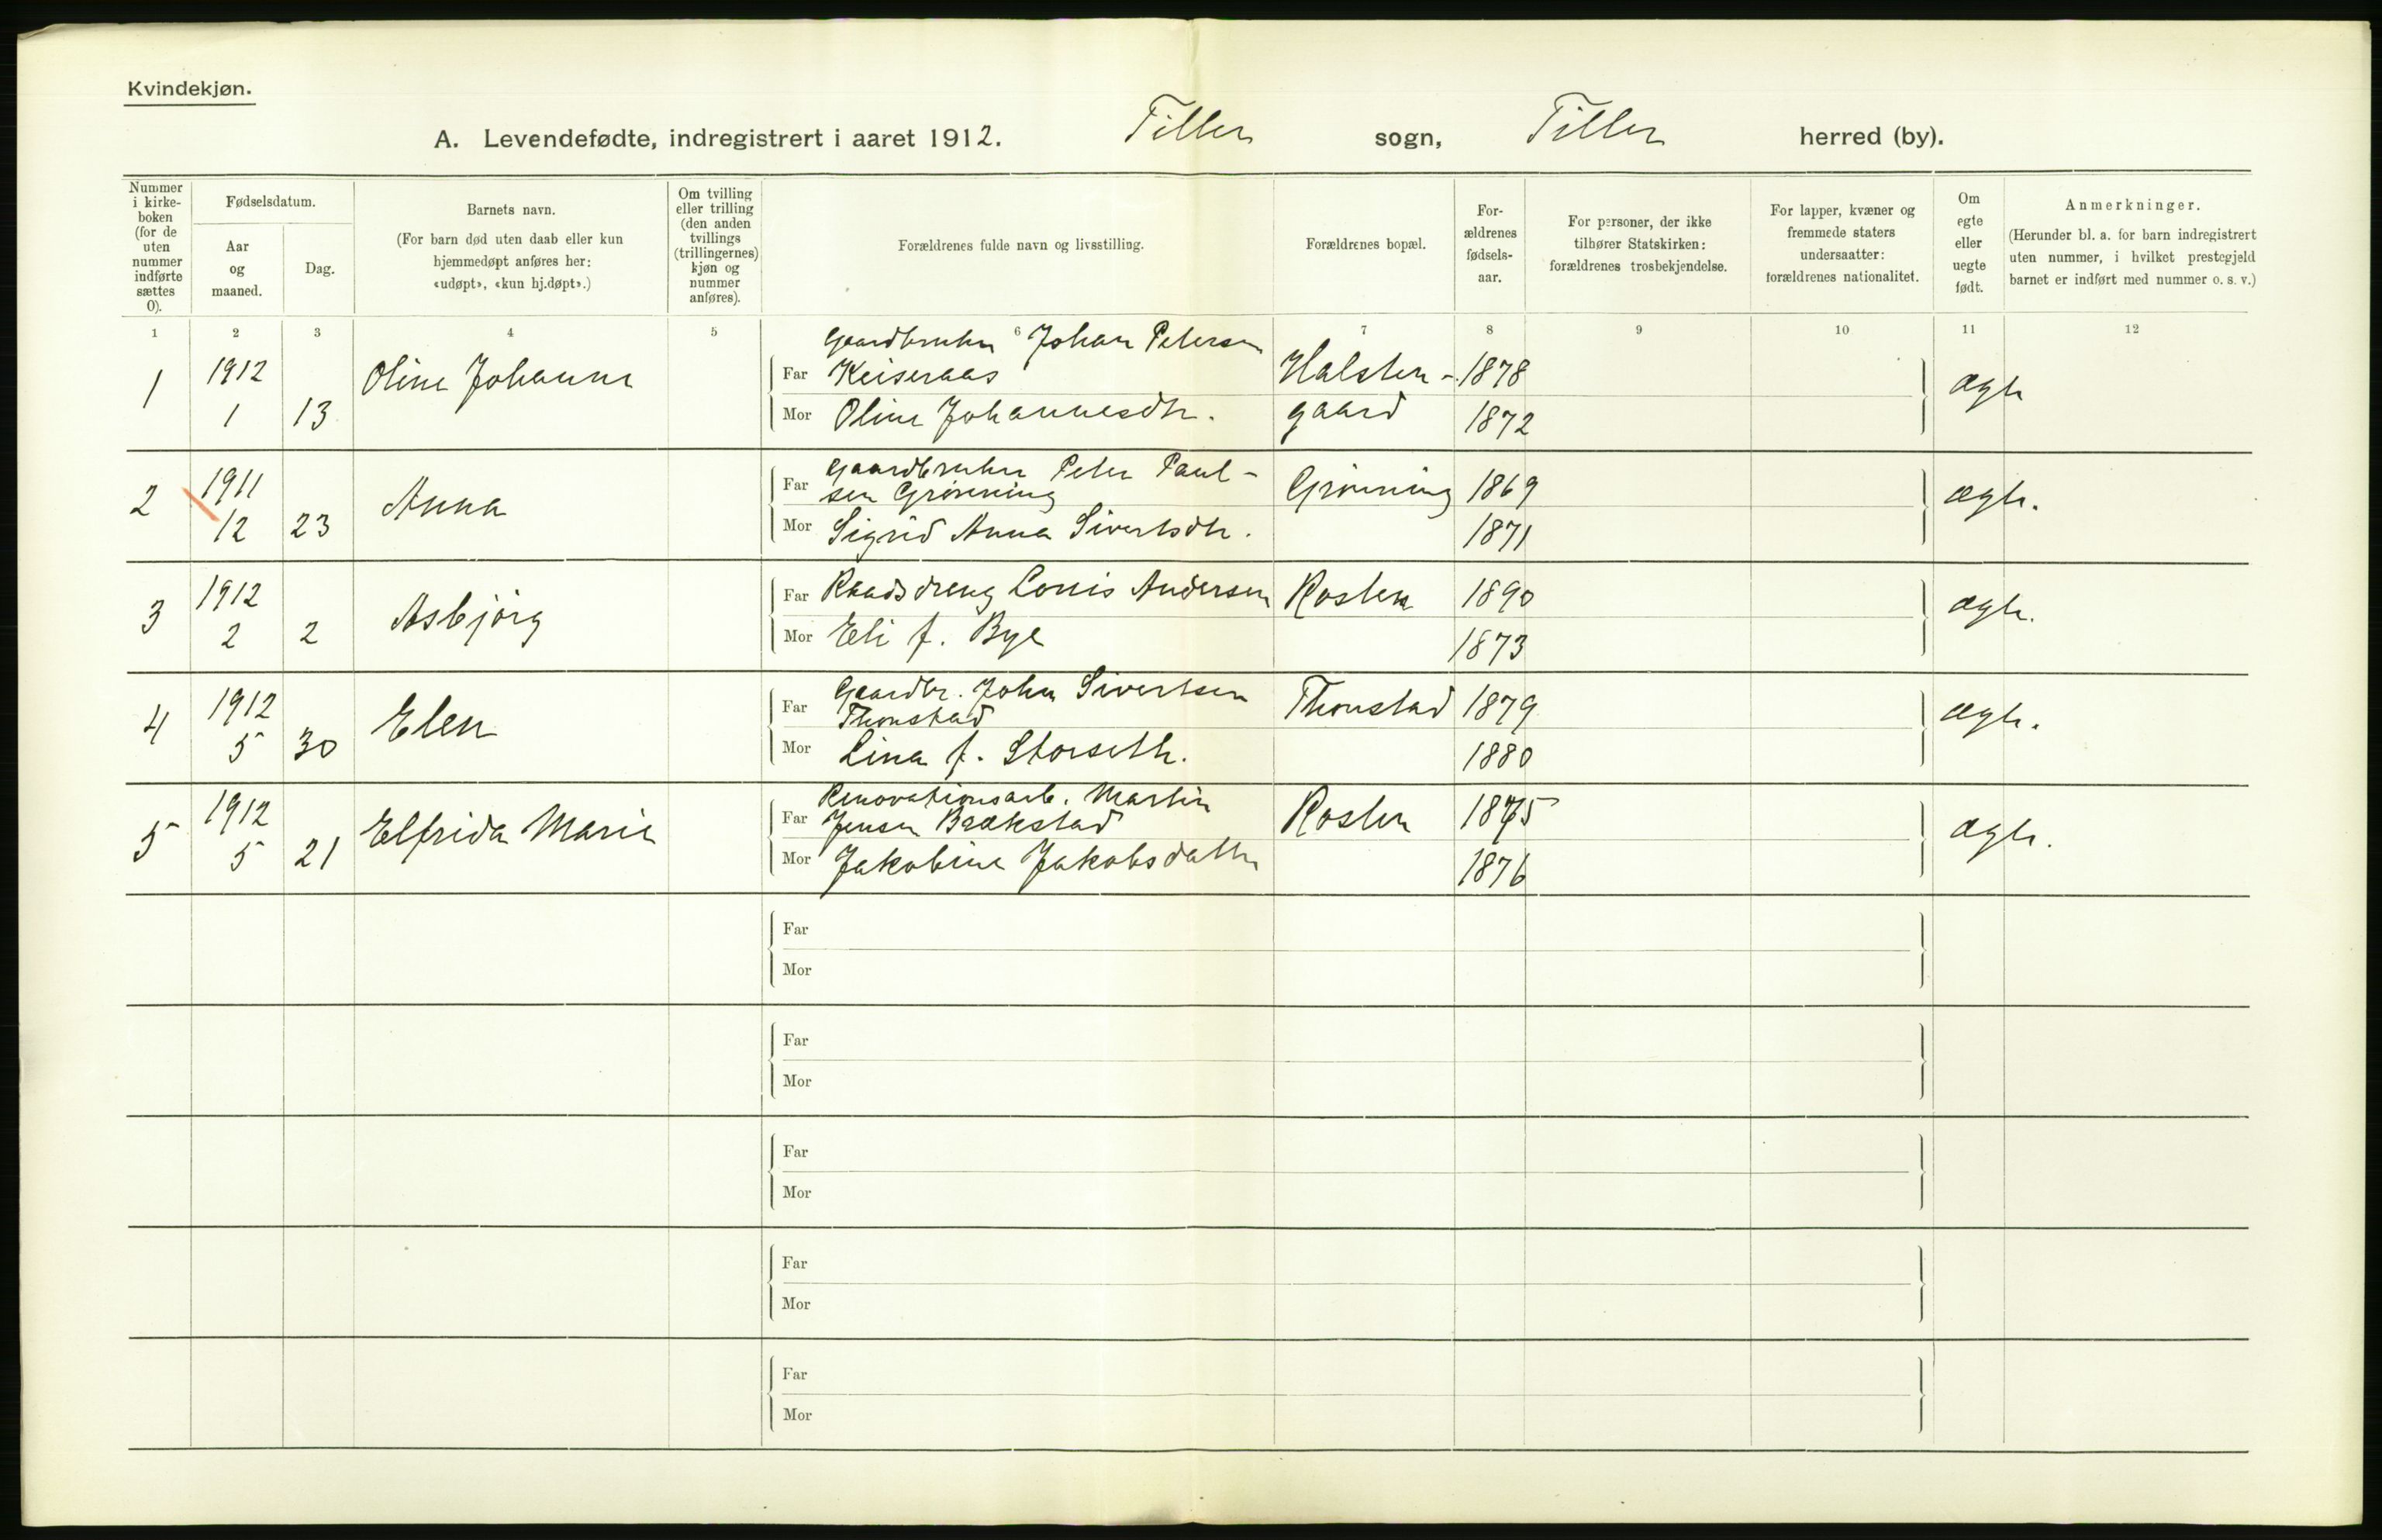 Kvindekjøn.
A. Levendefødte, indregistrert i aaret 1912. Tiller sogn, Tiller herred (by).
Nummer i kirke-boken (for de uten nummer indførte sættes 0).
Fødselsdatum.
Aar og maaned.
Dag.
Barnets navn.
(For barn død uten daab eller kun hjemmedøpt anføres her: «udøpt», «kun hj.døpt».)
Om tvilling eller trilling (den anden tvillings (trillingernes) kjøn og nummer anføres).
Forældrenes fulde navn og livsstilling.
Forældrenes bopæl.
For-ældrenes fødsels-aar.
For personer, der ikke tilhører Statskirken: forældrenes trosbekjendelse.
For lapper, kvæner og fremmede staters undersaatter: forældrenes nationalitet.
Om egte eller uegte født.
Anmerkninger.
(Herunder bl. a. for barn indregistrert uten nummer, i hvilket prestegjeld barnet er indført med nummer o. s. v.)
1 2 3 4 5 6 7 8 9 10 11 12
1 1912 1 13 Oline Johanne
Gaardbruker Johan Petersen
Far Keiseraas Halsten- 1878 ægte
Mor Oline Johannesdtr. gaard 1872
2 1911 12 23 Anna
Far Gaardbruker Peter Paul-
sen Grønning Grønning 1869 ægte.
Mor Sigrid Anna Sivertsdtr. 1871
3 1912 2 2 Asbjörg
Far Raadsdreng Louis Andersen Rosten 1890 ægte.
Mor Eli f. Bye 1873
4 1912 5 30 Elen
Far Gaardbr. John Sivertsen
Thonstad Thonstad 1879 ægte.
Mor Lina f. Storseth. 1880
5 1912 5 21 Elfrida Marie
Renovationsarb. Martin
Far Jensen Brækstad Rosten 1875 ægte.
Mor Jakobine Jakobsdatter 1876
Far
Mor
Far
Mor
Far
Mor
Far
Mor
Far
Mor